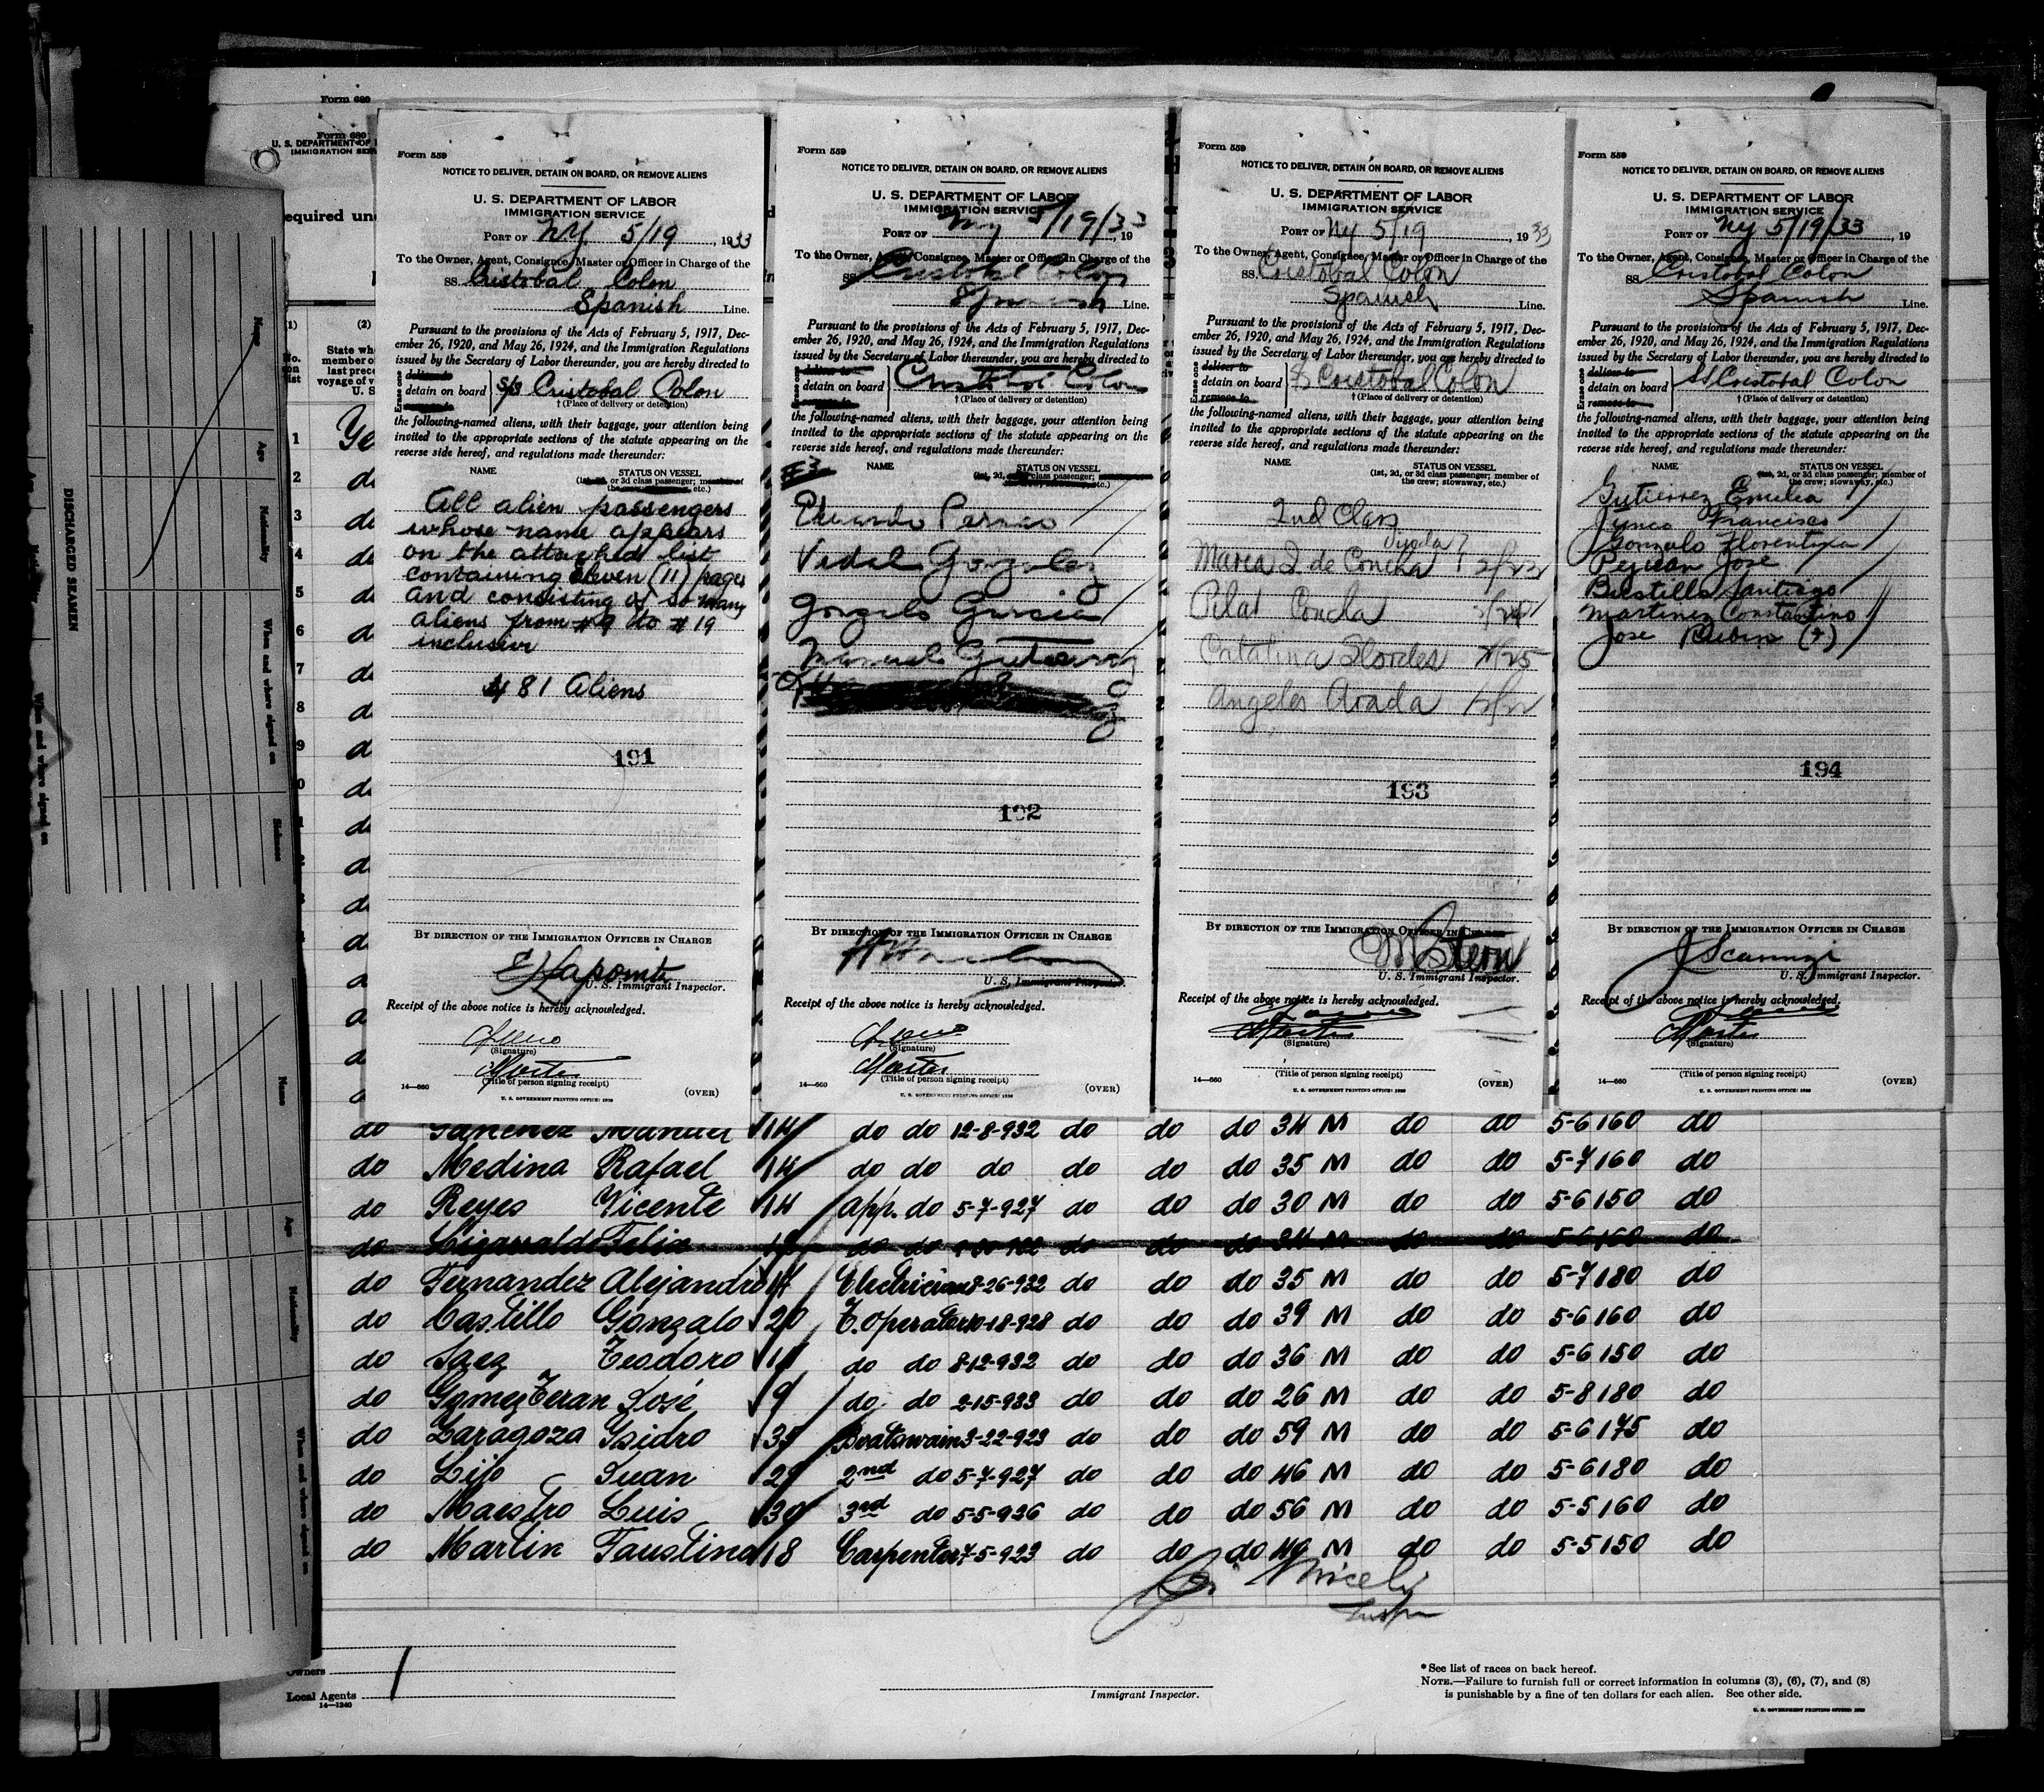 Form 680
Form 680
U. S. DEPARTMENT OF
IMMIGRATION SER
equired un
(1)
(2)
State wh
member o
last prece
voyage of v
U. S
Form 559
NOTICE TO DELIVER, DETAIN ON BOARD, OR REMOVE ALIENS
U. S. DEPARTMENT OF LABOR
IMMIGRATION SERVICE
PORT OF NY 5/19, 1933
To the Owner, Agent, Consignee, Master or Officer in Charge of the
SS. Cristobal Colon
Spanish Line.
Pursuant to the provisions of the Acts of February 5, 1917, Dec-
ember 26, 1920, and May 26, 1924, and the Immigration Regulations
issued by the Secretary of Labor thereunder, you are hereby directed to
Erase one
deliver to
detain on board S/S Cristobal Colon
† (Place of delivery or detention)
the following-named aliens, with their baggage, your attention being
invited to the appropriate sections of the statute appearing on the
reverse side hereof, and regulations made thereunder:
NAME STATUS ON VESSEL
(1st, 2d, or 3d class passenger; member of
the crew; stowaway, etc.)
All alien passengers
whose name appears
on the attached list
containing Eleven (11) pages
and consisting of so many
aliens from #9 to #19
inclusive
81 Aliens
191
BY DIRECTION OF THE IMMIGRATION OFFICER IN CHARGE
U. S. Immigrant Inspector.
Receipt of the above notice is hereby acknowledged.
(Signature)
Master
(Title of person signing receipt)
14—660 (OVER)
U. S. GOVERNMENT PRINTING OFFICE: 1930
Form 559
NOTICE TO DELIVER, DETAIN ON BOARD, OR REMOVE ALIENS
U. S. DEPARTMENT OF LABOR
IMMIGRATION SERVICE
PORT OF NY 5/19/33, 19
To the Owner, Agent, Consignee, Master or Officer in Charge of the
SS. Cristobal Colon
Spanish Line.
Pursuant to the provisions of the Acts of February 5, 1917, Dec-
ember 26, 1920, and May 26, 1924, and the Immigration Regulations
issued by the Secretary of Labor thereunder, you are hereby directed to
Erase one
deliver to
detain on board Cristobal Colon
† (Place of delivery or detention)
the following-named aliens, with their baggage, your attention being
invited to the appropriate sections of the statute appearing on the
reverse side hereof, and regulations made thereunder:
NAME STATUS ON VESSEL
Eduardo
Vidal Gonzalez
Gonzalo Garcia
Manuel Gutierrez
192
BY DIRECTION OF THE IMMIGRATION OFFICER IN CHARGE
U. S. Immigrant Inspector.
Receipt of the above notice is hereby acknowledged.
(Signature)
Master
(Title of person signing receipt)
14—660 (OVER)
U. S. GOVERNMENT PRINTING OFFICE: 1930
Form 559
NOTICE TO DELIVER, DETAIN ON BOARD, OR REMOVE ALIENS
U. S. DEPARTMENT OF LABOR
IMMIGRATION SERVICE
PORT OF NY 5/19, 1933
To the Owner, Agent, Consignee, Master or Officer in Charge of the
SS. Cristobal Colon
Spanish Line.
Pursuant to the provisions of the Acts of February 5, 1917, Dec-
ember 26, 1920, and May 26, 1924, and the Immigration Regulations
issued by the Secretary of Labor thereunder, you are hereby directed to
Erase one
deliver to
detain on board Cristobal Colon
remove to
† (Place of delivery or detention)
the following-named aliens, with their baggage, your attention being
invited to the appropriate sections of the statute appearing on the
reverse side hereof, and regulations made thereunder:
NAME STATUS ON VESSEL
(1st, 2d, or 3d class passenger; member of
the crew; stowaway, etc.)
2nd Class
Maria de Concha
Pilar Concha
Catalina
Angeles Arada
193
BY DIRECTION OF THE IMMIGRATION OFFICER IN CHARGE
M Stern
U. S. Immigrant Inspector.
Receipt of the above notice is hereby acknowledged.
Master
(Signature)
(Title of person signing receipt)
14—660 (OVER)
U. S. GOVERNMENT PRINTING OFFICE: 1930
Form 559
NOTICE TO DELIVER, DETAIN ON BOARD, OR REMOVE ALIENS
U. S. DEPARTMENT OF LABOR
IMMIGRATION SERVICE
PORT OF NY 5/19/33, 19
To the Owner, Agent, Consignee, Master or Officer in Charge of the
SS. Cristobal Colon
Spanish Line.
Pursuant to the provisions of the Acts of February 5, 1917, Dec-
ember 26, 1920, and May 26, 1924, and the Immigration Regulations
issued by the Secretary of Labor thereunder, you are hereby directed to
Erase one
deliver to
detain on board SS Cristobal Colon
remove to
† (Place of delivery or detention)
the following-named aliens, with their baggage, your attention being
invited to the appropriate sections of the statute appearing on the
reverse side hereof, and regulations made thereunder:
NAME STATUS ON VESSEL
(1st, 2d, or 3d class passenger; member of
the crew; stowaway, etc.)
Gutierrez Emilia
Francisco
Gonzalo Florentina
Jose
Santiago
Martinez Constantino
Jose Rubin
194
BY DIRECTION OF THE IMMIGRATION OFFICER IN CHARGE
U. S. Immigrant Inspector.
Receipt of the above notice is hereby acknowledged.
Master
(Signature)
(Title of person signing receipt)
14—660 (OVER)
U. S. GOVERNMENT PRINTING OFFICE: 1930
do Sanchez Manuel 14 do do 12-8-932 do do do 34 M do do 5-6 160 do
do Medina Rafael 14 do do do do do do 35 M do do 5-7 160 do
do Reyes Vicente 14 App. do 5-7-927 do do do 30 M do do 5-6 150 do
do Felix do do do do do 34 M do do 5-6 160 do
do Fernandez Alejandro 14 Electrician 8-26-932 do do do 35 M do do 5-7 180 do
do Castillo Gonzalo 20 T. Operator 10-18-928 do do do 39 M do do 5-6 160 do
do Saez Teodoro 11 do do 8-12-932 do do do 36 M do do 5-6 150 do
do Gomez Teran José 9 do do 2-15-933 do do do 26 M do do 5-8 180 do
do Zaragoza Isidro 35 Boatswain 3-22-923 do do do 59 M do do 5-6 175 do
do Lijo Juan 29 2nd do 5-7-927 do do do 46 M do do 5-6 180 do
do Maestro Luis 30 3rd do 5-5-926 do do do 56 M do do 5-5 160 do
do Martin Faustino 18 Carpenter 7-5-923 do do do 40 M do do 5-5 150 do
Owners
Local Agents
14—1240
Immigrant Inspector.
* See list of races on back hereof.
NOTE.—Failure to furnish full or correct information in columns (3), (6), (7), and (8)
is punishable by a fine of ten dollars for each alien. See other side.
U. S. GOVERNMENT PRINTING OFFICE: 1929
DISCHARGED SEAMEN
Name
Age
Nationality
When and where signed on
Name
Age
Nationality
When and where signed on